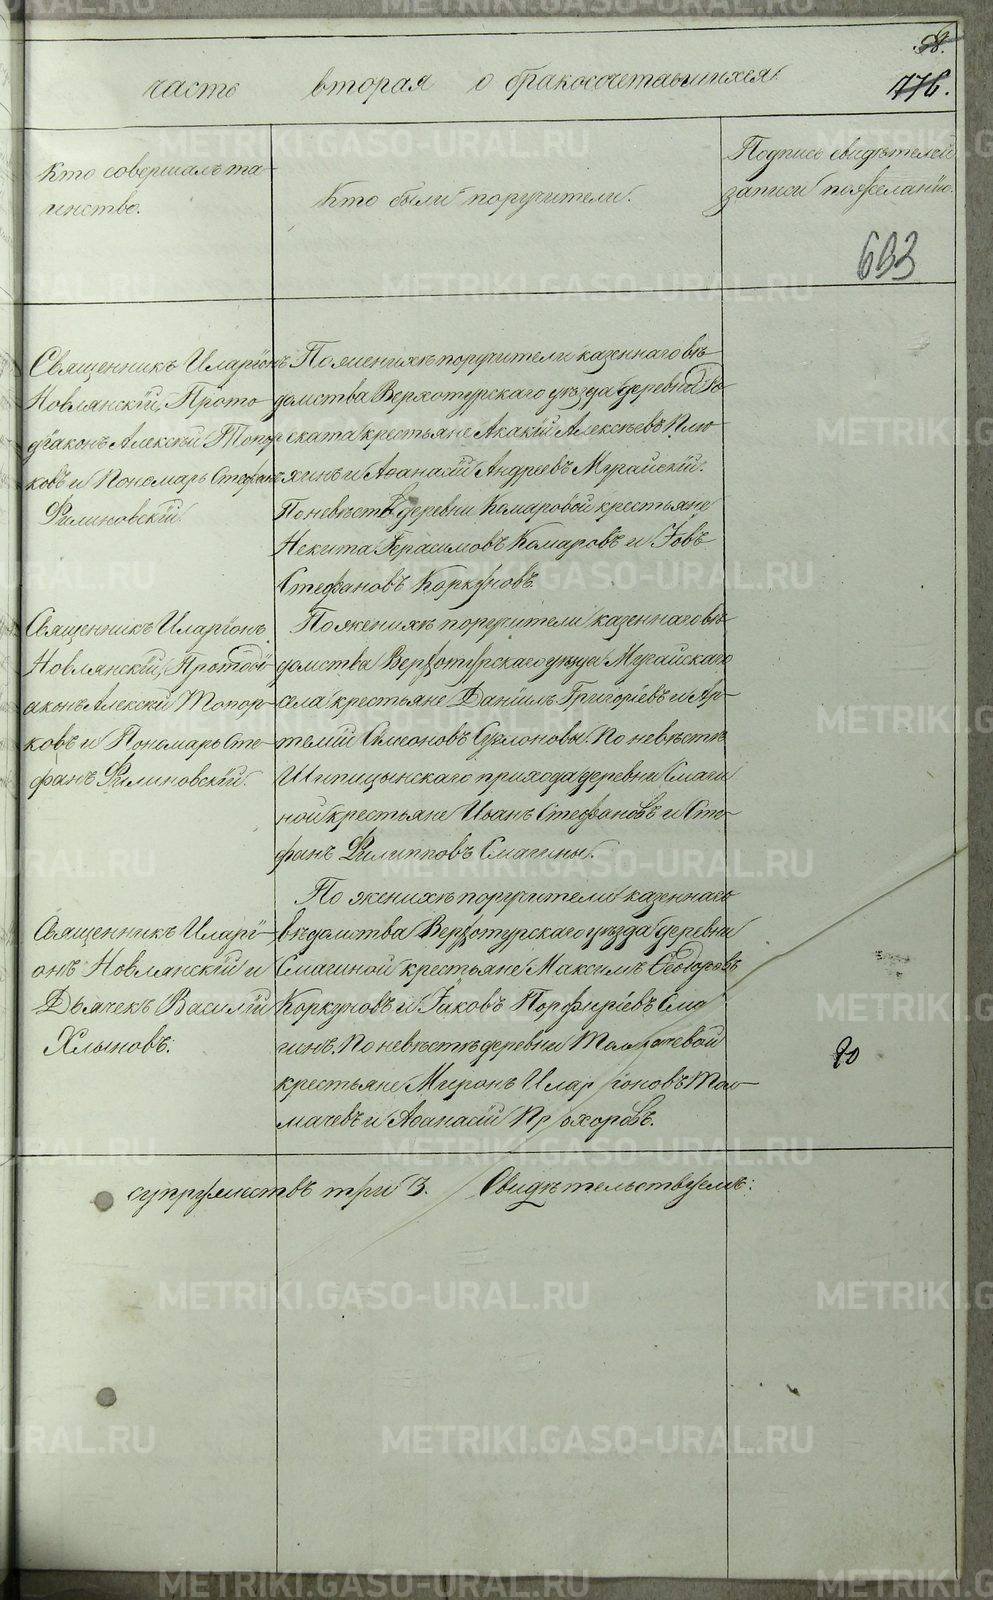 58.
часть вторая о бракосочетавшихся.
776.
Кто совершалъ та-
инство.
Кто были поручители.
Подпись свидѣтелей
записи пожеланію.
693
Священникъ Иларіонъ
Новлянскій, Прото
діаконъ Алексѣй Топор
ковъ и Пономарь Стефанъ
Филиновскій.
По женихѣ поручители казеннаго вѣ-
домства Верхотурскаго уѣзда деревни
крестьяне Акакій Алексѣевъ Плю
хинъ и Аѳанасій Андреевъ Мугайскій.
По невѣстѣ деревни Комаровой крестьяне
Некита Герасимовъ Комаровъ и Іовъ
Стефановъ Коркуновъ.
Священникъ Иларіонъ
Новлянскій, Протоді-
аконъ Алексѣй Топор-
ковъ и Пономарь Сте-
фанъ Филиновскій.
По женихѣ поручители казеннаго вѣ-
домства Верхотурскаго уѣзда Мугайскаго
села крестьяне Даніилъ Григорьевъ и Ар-
темій Симеоновъ Суслоновы. По невѣстѣ
Шипицынскаго прихода деревни Смаги
ной крестьяне Иванъ Стефановъ и Сте-
фанъ Филипповъ Смагины.
Священникъ Иларі-
онъ Новлянскій и
Дьячекъ Василій
Хлыновъ.
По женихѣ поручители казеннаго
вѣдомства Верхотурскаго уѣзда деревни
Смагиной крестьяне Максимъ Ѳеодоровъ
Коркуновъ и Іаковъ Порфирьевъ Сма
гинъ. По невѣстѣ деревни Толмачевой
крестьяне Миронъ Иларіоновъ Тол-
мачевъ и Аѳанасій Прохоровъ.
80
супружествъ три 3. Свидѣтельствуемъ:
METRIKI.GASO-URAL.RU